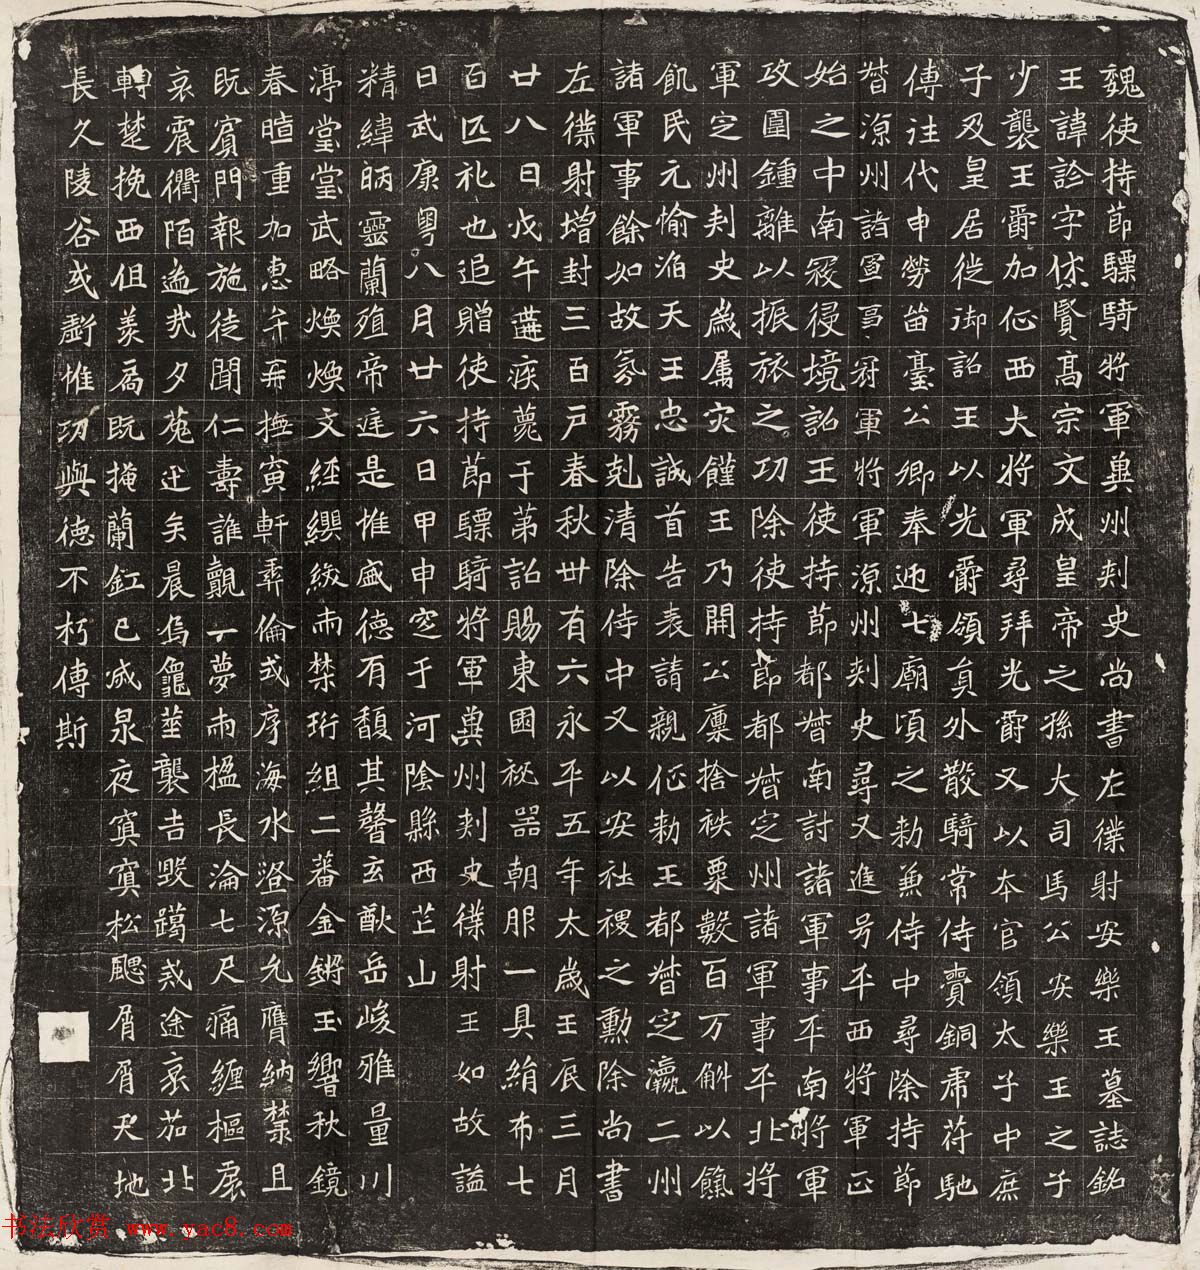 魏使持節驃騎將軍冀州刺史尚書左僕射安樂王墓誌銘
王諱詮字休賢高宗文成皇帝之孫大司馬公安樂王之子
少襲王爵加征西大將軍尋拜光爵又以本官領太子中庶
子及皇居徙御詔王以光爵領員外散騎常侍賷銅虎苻馳
傳往代申勞留臺公卿奉迎七廟頃之勑兼侍中尋除持節
督涼州諸軍事冠軍將軍涼州刾史尋又進号平西將軍正
始之中南寇侵境詔王使持節都督南討諸軍事平南將軍
攻圍鍾離以振旅之功除使持節都督定州諸軍事平北將
軍定州刾史歲屬灾饉王乃開公廩捨秩粟數百万斛以餼
飢民元愉滔天王忠誠首告表請親征勑王都督定瀛二州
諸軍事餘如故氛霧剋清除侍中又以安社稷之勳除尚書
左僕射增封三百戶春秋卅有六永平五年太歲壬辰三月
廿八日戊午遘疾薨于第詔賜東園祕器朝服一具絹布七
百匹礼也追贈使持節驃騎將軍冀州刾史僕射王如故謚
曰武康粵八月廿六日甲申窆于河陰縣西芒山
精緯昞靈蘭殖帝庭是惟盛德有馥其聲玄猷岳峻雅量川
渟堂堂武略煥煥文經纓紱兩禁珩組二蕃金鏘玉響秋鏡
春暄重加惠弁再撫寅軒彝倫或序海水澄源允膺納禁且
既賓門報施徒聞仁壽誰覿一夢兩楹長淪七尺痛纏樞扆
哀震衢陌遙哉夕菟迮矣晨烏龜筮襲吉毀躅戒途哀茄北
轉楚挽西徂美扃既掩蘭釭已滅泉夜寘寘松颸屑屑天地
長久陵谷或虧惟功與德不朽傳斯
书法欣赏 www.yac8.com